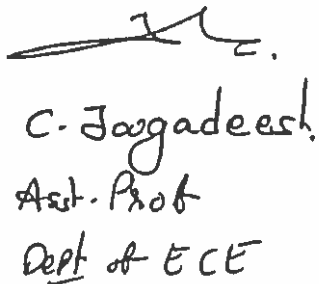 C. Jaagadeesh.
Asst. Prof
Dept of ECE